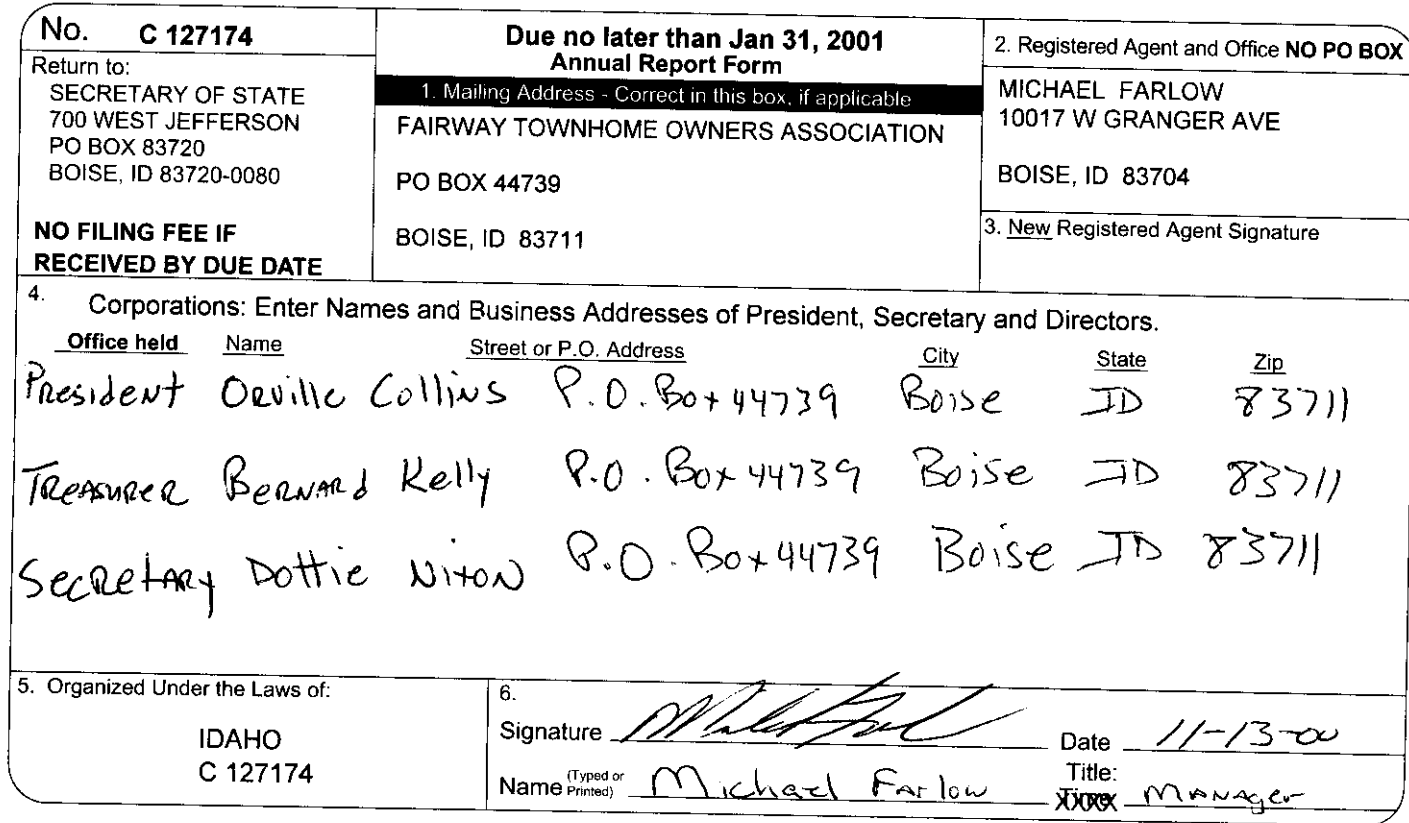 No. C 127174
Return to:
SECRETARY OF STATE
700 WEST JEFFERSON
PO BOX 83720
BOISE, ID 83720-0080
NO FILING FEE IF
RECEIVED BY DUE DATE
Due no later than Jan 31, 2001
Annual Report Form
1. Mailing Address - Correct in this box, if applicable
FAIRWAY TOWNHOME OWNERS ASSOCIATION
PO BOX 44739
BOISE, ID 83711
2. Registered Agent and Office NO PO BOX
MICHAEL FARLOW
10017 W GRANGER AVE
BOISE, ID 83704
3. New Registered Agent Signature
4. Corporations: Enter Names and Business Addresses of President, Secretary and Directors.
Office held Name Street or P.O. Address City State Zip
President Orville Collins P.O. Box 44739 Boise ID 83711
Treasurer Bernard Kelly P.O. Box 44739 Boise ID 83711
Secretary Dottie Nixon P.O. Box 44739 Boise ID 83711
5. Organized Under the Laws of:
IDAHO
C 127174
6.
Signature Date 11-13-00
Name (Typed or Printed) Michael Farlow Title: Manager